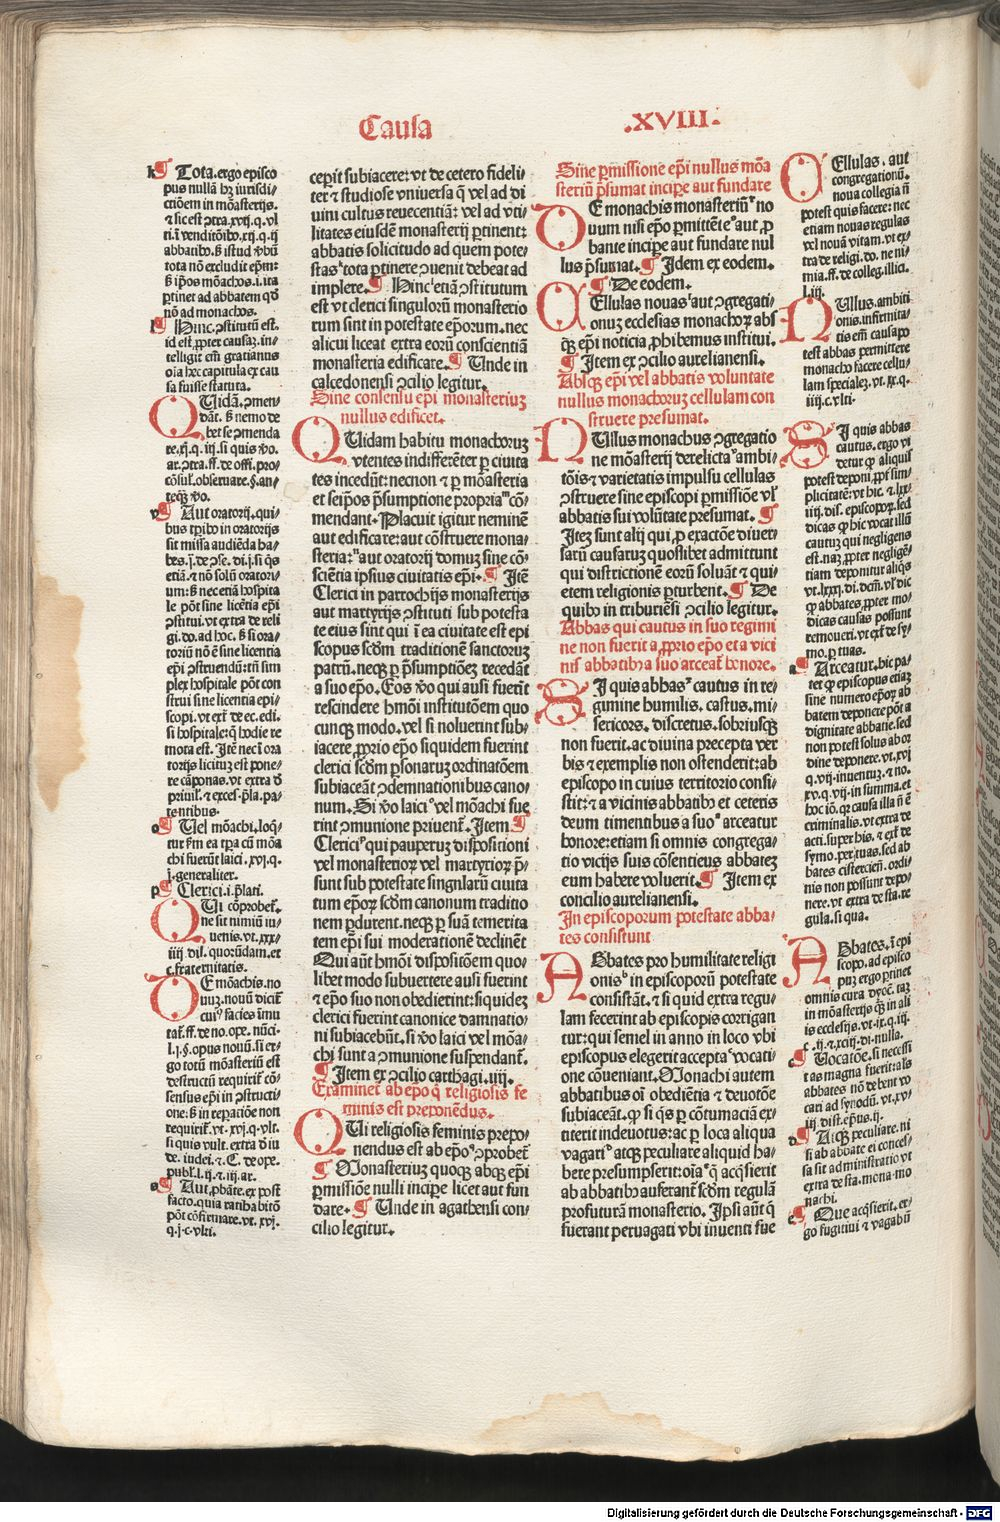 Causa
.XVIII.
k ¶ Tota. ergo episco
pus nullā hꝫ iurisdi/
ctiōem in mōasterijs.
⁊ sic est ꝯtra. xvij. q. vl
abbatibꝰ. ꝫ istud ꝟbū
tota nō excludit ep̄m:
ꝫ ip̄os mōachos. i. ita
ꝑtinet ad abbatem qd̓
nō ad monachos.
l ¶ Hinc. ꝯstitutū est.
id est. ꝓpter causaꝫ. in/
telligit em̄ gratianus
oīa hec capitula ex cau
sa fuisse statuta.
QUidā. ꝯmen/
dāt. ꝫ nemo de
bet se ꝯmenda
re. xj. q. iij. si quis ꝟo.
ar. ꝯtra. ff. de offi. pro/
cōsul̓. obseruare. §. an/
teq̄ꝫ ꝟo.
¶ Aut oratorij. qui/
bus tp̄ibꝰ in oratorijs
sit missa audiēda ha/
bes. j. de ꝯse. di. j. si q̄s
etiā. ⁊ nō solū oratori/
um: ꝫ nec etiā hospita
le pōt sine licētia ep̄i
ꝯstitui. vt extra de reli
gi. do. ad hoc. ꝫ si ora/
toriū nō ē sine licentia
ep̄i ꝯstruendū: tn̄ sim
plex hospitale pōt con
strui sine licentia epi/
scopi. vt ext̓ de ec. edi.
si hospitale: q̄ hodie re
mota est. Itē nec ī ora
torijs licituꝫ est pone/
re cāponas. vt extra d̓
priuil̓. ⁊ exces. p̄la. pa/
tentibus.
o ¶ Uel mōachi. loq̄/
tur fm̄ ea tꝑa cū mōa
chi fuerūt laici. xvj. q.
j. generaliter.
p ¶ Clerici. i. p̄lati.
QUi cōprobet̓.
ne sit nimiū iu/
uenis. vt. xxx/
iiij dis. quorūdam. et
c. fraternitatis.
DE mōachis. no
uuꝫ. nouū dicit̓
cuiꝰ facies īmu
tat̓. ff. de no. ope. nūci.
l. j. §. opus nouū. si er/
go totū mōasteriū est
destructū requirit̓ cō/
sensus ep̄i in ꝯstructi/
one: ꝫ in reꝑaciōe non
requirit̓. vt. xvj. q. vlt.
si quis vult. extra d̓ iu
de. iudei. ⁊. C. de ope.
publ̓. l. ij. ⁊. iij. ar.
s ¶ Aut. ꝓbāte. ex post
facto. quia ratihabitō
pōt cōfirmare. vt. xvj.
q. j. c. vlti.
ceperit subiacere: vt de cetero fideli/
ter ⁊ studiose vniuersa q̄ vel ad di
uini cultus reuerentiā: vel ad vti/
litates eiusdē monasterij ꝑtinent:
abbatis solicitudo ad quem pote/
stas tota ꝑtinere ꝯuenit debeat ad
implere. ¶ Hinc etiā ꝯstitutum
est vt clerici singulorū monasterio
rum sint in potestate ep̄orum. nec
alicui liceat extra eorū conscientiā
monasteria edificare. ¶ Unde in
calcedonensi ꝯcilio legitur.
Sine consensu ep̄i monasteriuꝫ
nullus edificet.
QUidam habitu monachoruꝫ
vtentes indifferēter ꝑ ciuita
tes incedūt: necnon ⁊ ꝑ mōasteria
et seip̄os p̄sumptione propria cō/
mendant. Placuit igitur neminē
aut edificare: aut cōstruere mona/
steria: aut oratorij domuꝫ sine cō/
sciētia ipsius ciuitatis ep̄i. ¶ Itē
Clerici in parrochijs monasterijs
aut martyrijs ꝯstituti sub potesta
te eius sint qui ī ea ciuitate est epi
scopus scd̓m traditionē sanctoruꝫ
patrū. neqꝫ ꝑ p̄sumptiōeꝫ recedāt
a suo ep̄o. Eos ꝟo qui ausi fuerīt
rescindere hmōi institutōem quo
cunqꝫ modo. vel si noluerint sub/
iacere. ꝓprio ep̄o siquidem fuerint
clerici scd̓m ꝑsonaruꝫ ordinatōem
subiaceāt ꝯdemnationibus cano/
num. Si ꝟo laici vel mōachi fue
rint ꝯmunione priuent̓. Item ¶
Clerici qui pauperuꝫ dispositioni
vel monasterioꝝ vel martyrioꝝ p̄/
sunt sub potestate singularū ciuita
tum ep̄oꝝ scd̓m canonum traditio
nem ꝑdurent. neqꝫ ꝑ suā temerita
tem ep̄i sui moderationē declinēt
Qui aūt hmōi dispositōem quo/
libet modo subuertere ausi fuerint
⁊ ep̄o suo non obedierint: siquideꝫ
clerici fuerint canonice damnatio/
ni subiacebūt. si ꝟo laici vel mōa/
chi sunt a ꝯmunione suspendant̓.
¶ Item ex ꝯcilio carthagi. iiij.
Examinet̓ ab ep̄o q̄ religiosis fe
minis est preponēdus.
QUi religiosis feminis prepo/
nendus est ab ep̄o ꝯprobet̓
¶ Monasteriuꝫ quoqꝫ absqꝫ ep̄i
ꝑmissiōe nulli incipe licet aut fun
dare. ¶ Unde in agathensi con/
cilio legitur.
Sine ꝑmissione ep̄i nullus mōa
steriū p̄sumat incipe aut fundare
DE monachis monasteriū no
uum nisi ep̄o ꝑmittēte aut ꝓ
bante incipe aut fundare nul
lus p̄sumat. ¶ Idem ex eodem.
¶ De eodem.
CEllulas nouas aut ꝯgregati/
onuꝫ ecclesias monachoꝝ abs
qꝫ ep̄i noticia ꝓhibemus institui.
¶ Item ex ꝯcilio aurelianensi.
Absqꝫ ep̄i vel abbatis voluntate
nullus monachoruꝫ cellulam con
struere presumat.
NUllus monachus ꝯgregatio
ne mōasterij derelicta ambi/
tiōis ⁊ varietatis impulsu cellulas
ꝯstruere sine episcopi ꝑmissiōe vl̓
abbatis sui volūtate presumat. ¶
Iteꝫ sunt alij qui ꝓ exactōe diuer/
sarū causaruꝫ quoslibet admittunt
qui districtionē eorū soluāt ⁊ qui/
etem religionis ꝑturbent. ¶ De
quibꝰ in triburiēsi ꝯcilio legitur.
Abbas qui cautus in suo regimi
ne non fuerit a ꝓprio ep̄o et a vici
nis abbatibꝰ a suo arceat̓ honore.
SI quis abbas cautus in re/
gimine humilis. castus. mi/
sericors. discretus. sobriusqꝫ
non fuerit. ac diuina precepta ver
bis ⁊ exemplis non ostenderit: ab
episcopo in cuius territorio consi/
stit: ⁊ a vicinis abbatibꝰ et ceteris
deum timentibus a suo arceatur
honore: etiam si omnis congrega/
tio vicijs suis cōsentiens abbateꝫ
eum habere voluerit. ¶ Item ex
concilio aurelianensi.
In episcoporum potestate abba/
tes consistunt
ABbates pro humilitate religi
onis in episcoporū potestate
consistāt. ⁊ si quid extra regu/
lam fecerint ab episcopis corrigan
tur: qui semel in anno in loco vbi
episcopus elegerit accepta vocati/
one cōueniant. Monachi autem
abbatibus oī obediētia ⁊ deuotōe
subiaceāt. ꝙ si q̄s ꝑ cōtumaciā ex/
titerit indeuotus: ac ꝑ loca aliqua
vagari atqꝫ peculiare aliquid ha/
bere presumpserit: oīa q̄ acq̄sierit
ab abbatibꝰ auferant̓ scd̓m regulā
profuturā monasterio. Ipsi aūt q̄
fuerant peruagati vbi inuenti fue
CEllulas. aut
congregationū.
noua collegia n̄
potest quis facere: nec
etiam nouas regulas
vel nouā vitam. vt ex/
tra de religi. do. ne ni/
mia. ff. de colleg. illici.
l. iij.
NUllus. ambiti
onis. infirmita/
tis em̄ causa po
test abbas permittere
monacho facere cellu/
lam specialeꝫ. vt. xx. q.
iiij. c. vlti.
SI quis abbas
cautus. ergo vi
detur ꝙ aliquis
potest deponi. ꝓpt̓ sim/
plicitatē: vt hic. ⁊. lxx/
iiij. dis. episcopoꝝ. sed
dicas ꝙ hic vocat illū
cautuꝫ qui negligens
est. naꝫ ꝓpter negligē/
tiam deponitur aliq̄s
vt. lxxxj. di. dcm̄. vl̓ dic
ꝙ abbates. ꝓpter mo/
dicas causas possunt
remoueri. vt ext̓ de sy/
mo. ꝑ tuas.
a ¶ Arceatur. hic pa/
tet ꝙ episcopus etiaꝫ
sine numero ep̄oꝝ ab
batem deponere pōt a
dignitate abbatie. sed
non potest solus ab or
dine deponere. vt. xvj
q. vij. inuentuꝫ. ⁊ no.
xv. q. vij. in summa. et
hoc iō. qꝛ causa illa n̄ ē
criminalis. vt extra de
acti. super his. ⁊ ext̓ de
symo. per tuas. sed ab
bates cistercien̄. ordi/
nis non possunt depo/
nere. vt extra de sta. re
gula. si qua.
ABbates. ī epi
scopo. ad episco
puꝫ ergo ꝑtinet
omnis cura dyoc̄. taꝫ
in mōasterijs qꝫ in ali
is ecclesijs. vt. ix. q. iij.
c. ij. ⁊. xciij. di. nulla.
c ¶ Uocatōe. si necessi
tas magna fuerit: als
abbates nō debent vo
cari ad synodū. vt. xv/
iij. dist. ep̄us. ij.
d ¶ Atqꝫ peculiare. ni
si ab abbate ei conces/
sa sit administratio vt
extra de sta. mona. mo
nachi.
e ¶ Que acq̄sierit. er/
go fugitiui ⁊ vagabū
Digitalisierung gefördert durch die Deutsche Forschungsgemeinschaft - DFG